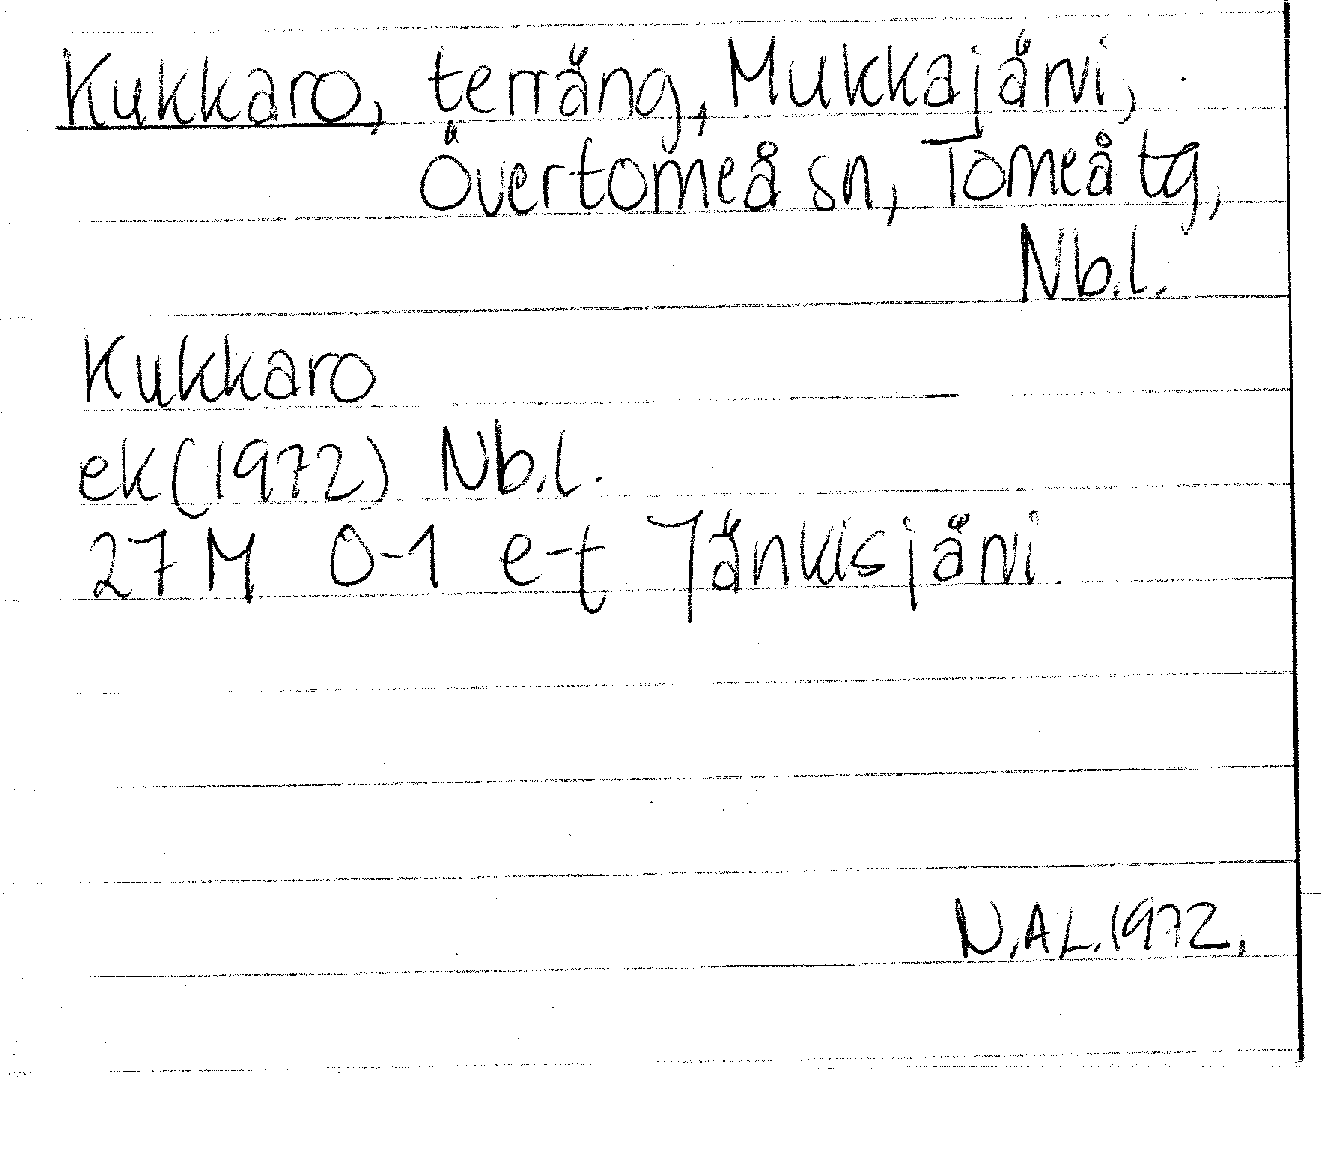 Kukkaro, terräng, Mukkajärvi,
Övertorneå sn, Torneå tg,
Nb.l.
Kukkaro
ek (1972) Nb.l.
27 M 0-1 e-f Jänkisjärvi
N.A L. 1972.